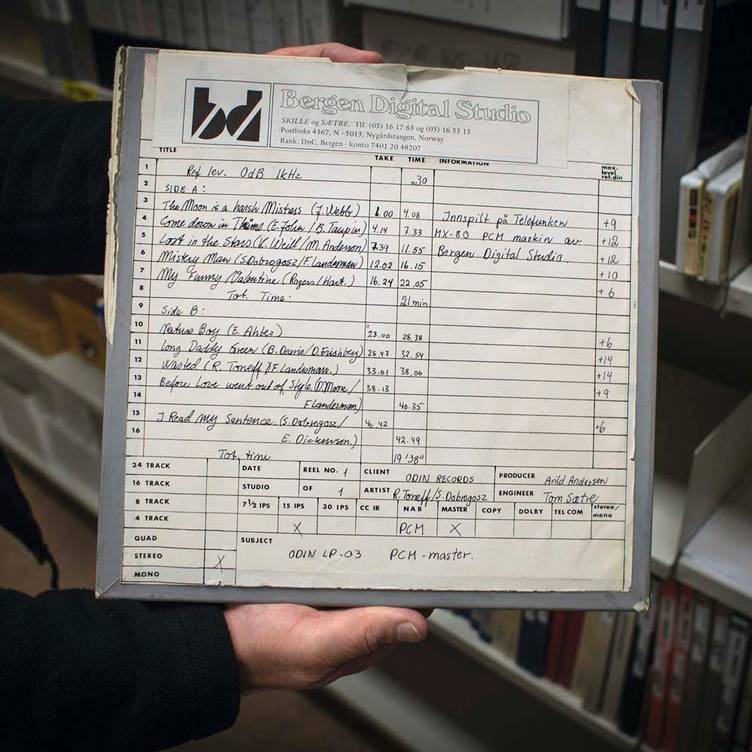 bd
Bergen Digital Studio
SKILLE og SÆTRE. Tlf. (05) 16 17 63 og (05) 16 53 15
Postboks 4367, N - 5013, Nygårdstangen, Norway
Bank: DnC, Bergen - konto 7401 20 48207
TITLE TAKE TIME INFORMATION max. level ref. din
1 Ref lev. 0dB 1kHz .30
2 SIDE A:
3 The Moon is a harsh Mistress (J. Webb) 1.00 4.08 Innspilt på Telefunken +9
4 Come down in Time (E. John / B. Taupin) 4.14 7.33 MX-80 PCM maskin av +12
5 Lost in the Stars (K. Weill / M. Anderson) 7.39 11.55 Bergen Digital Studio +12
6 Mistery Man (S. Dobrogosz / F. Landesman) 12.02 16.15 +10
7 My Funny Valentine (Rogers / Hart.) 16.24 22.05 +6
8 Tot. Time: 21min
9 Side B:
10 Nature Boy (E. Ahbez) 23.00 26.38 +6
11 Long Daddy Green (B. Dearie / D. Frishberg) 26.47 32.54 +14
12 Wasted (R. Toneff / F. Landesman.) 33.01 38.06 +14
13 Before Love went out of Style (D. Moore / 38.13 +9
14 F Landesman) 40.35
15 I Read My Sentence. (S. Dobrogosz / 40.42 +6
16 E. Dickenson.) 42.49
Tot. time 19'38"
24 TRACK DATE REEL NO. 1 CLIENT ODIN RECORDS PRODUCER Arild Andersen
16 TRACK STUDIO OF 1 ARTIST R. Toneff / S. Dobrogosz ENGINEER Tom Sætre
8 TRACK 7½ IPS 15 IPS 30 IPS CC IR NAB MASTER COPY DOLBY TEL COM stereo / mono
4 TRACK X PCM X
QUAD SUBJECT
STEREO X ODIN LP-03 PCM-master.
MONO